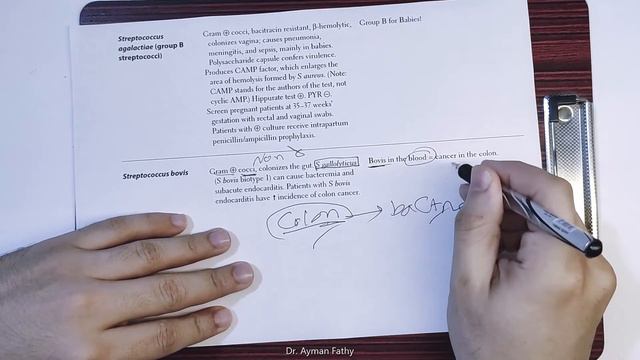 Streptococcus
agalactiae (group B
streptococci)
Gram ⊕ cocci, bacitracin resistant, β-hemolytic,
colonizes vagina; causes pneumonia,
meningitis, and sepsis, mainly in babies.
Polysaccharide capsule confers virulence.
Produces CAMP factor, which enlarges the
area of hemolysis formed by S aureus. (Note:
CAMP stands for the authors of the test, not
cyclic AMP.) Hippurate test ⊕. PYR ⊝.
Screen pregnant patients at 35–37 weeks'
gestation with rectal and vaginal swabs.
Patients with ⊕ culture receive intrapartum
penicillin/ampicillin prophylaxis.
Group B for Babies!
Streptococcus bovis
Non γ
Gram ⊕ cocci, colonizes the gut. S gallolyticus
(S bovis biotype 1) can cause bacteremia and
subacute endocarditis. Patients with S bovis
endocarditis have ↑ incidence of colon cancer.
Bovis in the blood = cancer in the colon.
Colon →
Dr. Ayman Fathy